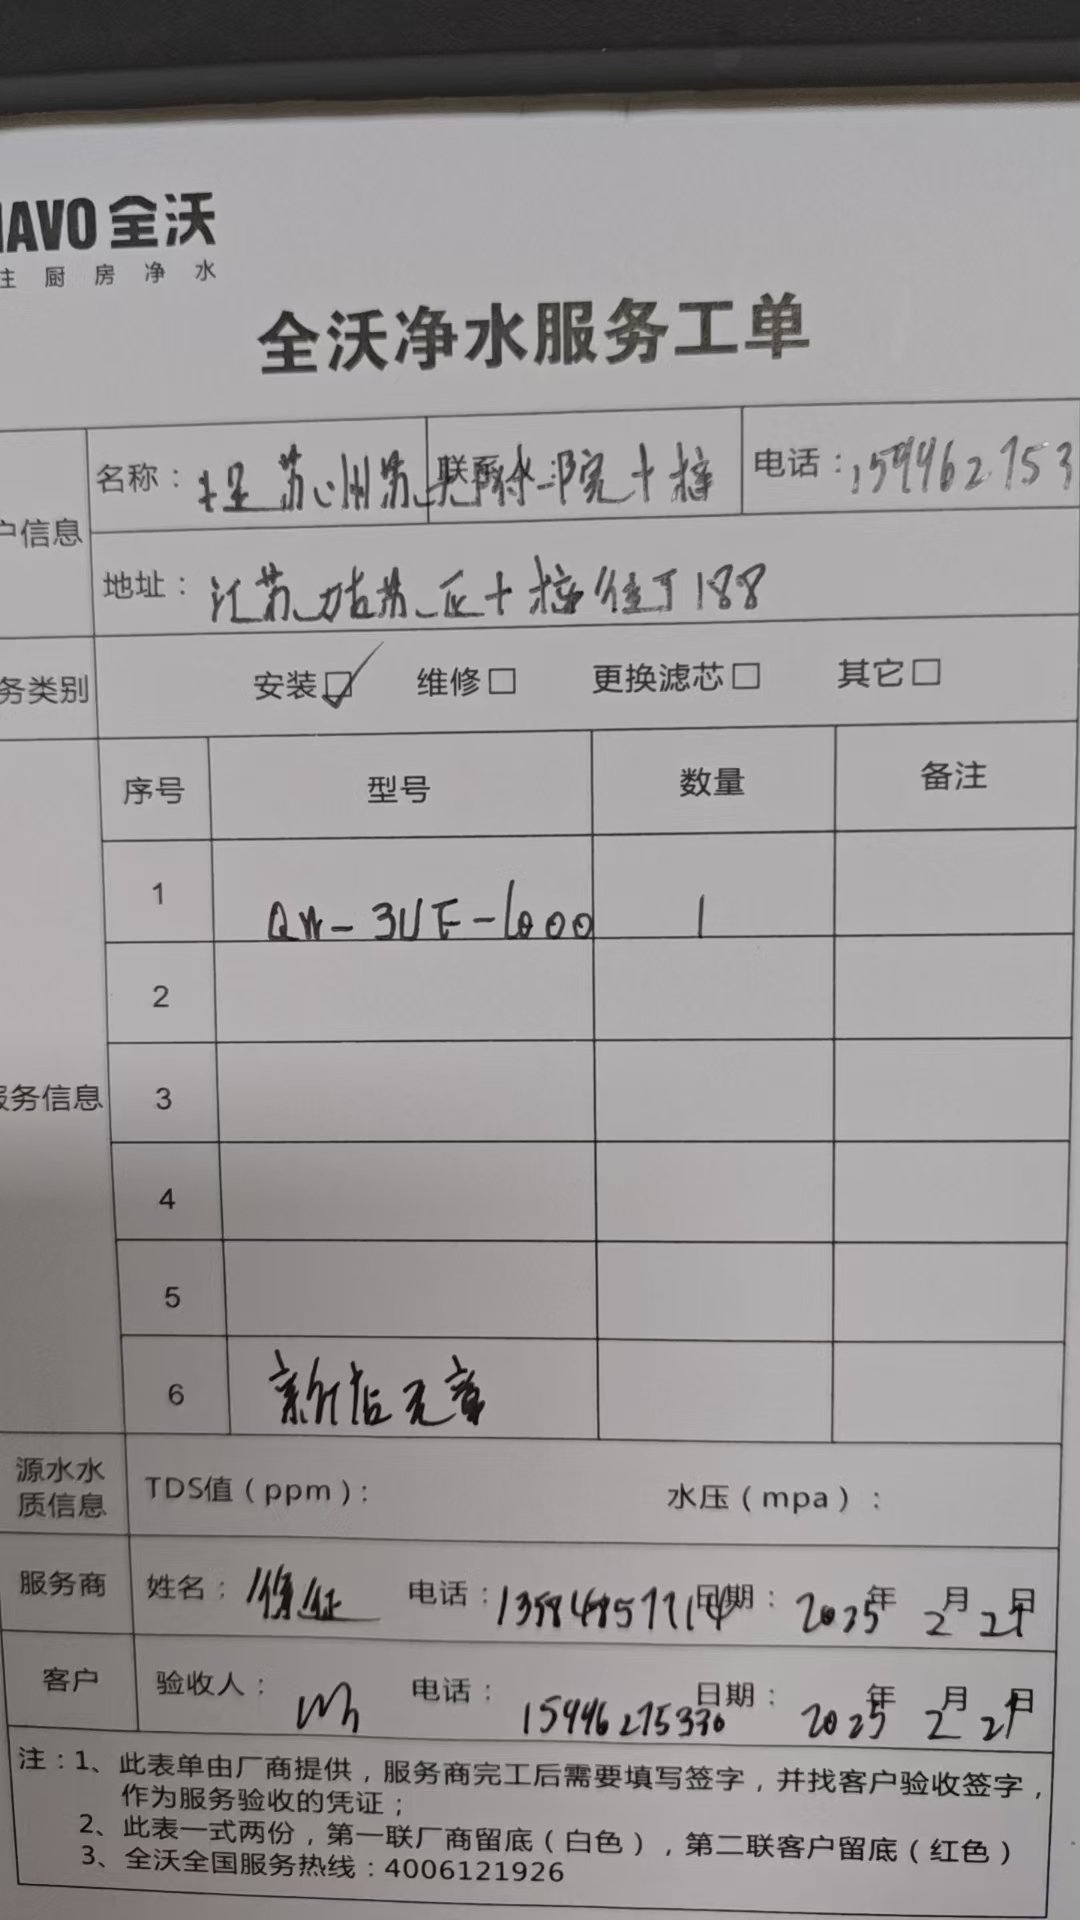 IAVO 全沃
注厨房净水
全沃净水服务工单
户信息
名称： 苏州 院十梓
电话：159962753
地址：江苏姑苏区十梓街188
务类别
安装☑ 维修□ 更换滤芯□ 其它□
服务信息
序号 型号 数量 备注
1 QW-3UF-1000 1
2
3
4
5
6 新店无章
源水水质信息
TDS值（ppm）： 水压（mpa）：
服务商 姓名： 电话： 日期：2025年2月21日
客户 验收人： 电话： 日期：2025年2月21日
注：1、此表单由厂商提供，服务商完工后需要填写签字，并找客户验收签字，
作为服务验收的凭证；
2、此表一式两份，第一联厂商留底（白色），第二联客户留底（红色）
3、全沃全国服务热线：4006121926